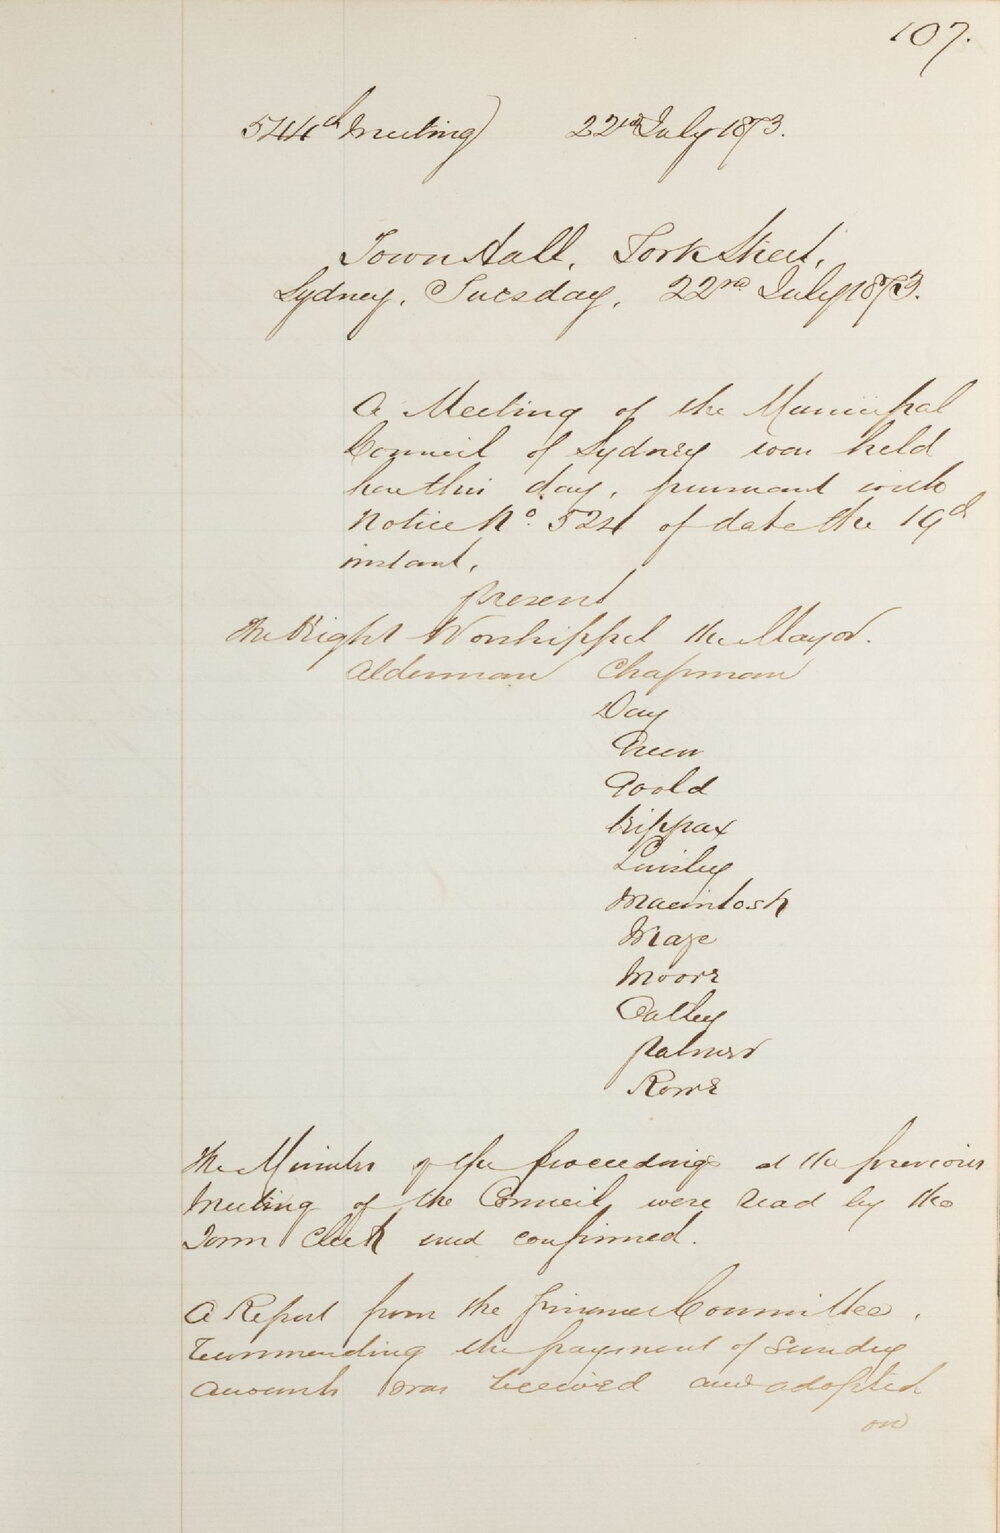 107.
544th Meeting) 22nd July 1873.
Town Hall, York Street,
Sydney, Tuesday, 22nd July 1873.
A Meeting of the Municipal
Council of Sydney was held
here this day, pursuant with
Notice No. 524 of date the 19th
instant,
present
The Right Worshipful the Mayor.
Aldermen Chapman
Day
Green
Goold
Hippax
Linsley
Macintosh
Maze
Moore
Oatley
Palmer
Rowe
The Minutes of the proceedings at the previous
Meeting of the Council were read by the
Town Clerk and confirmed.
A Report from the Finance Committee,
recommending the payment of sundry
amounts was received and adopted
on